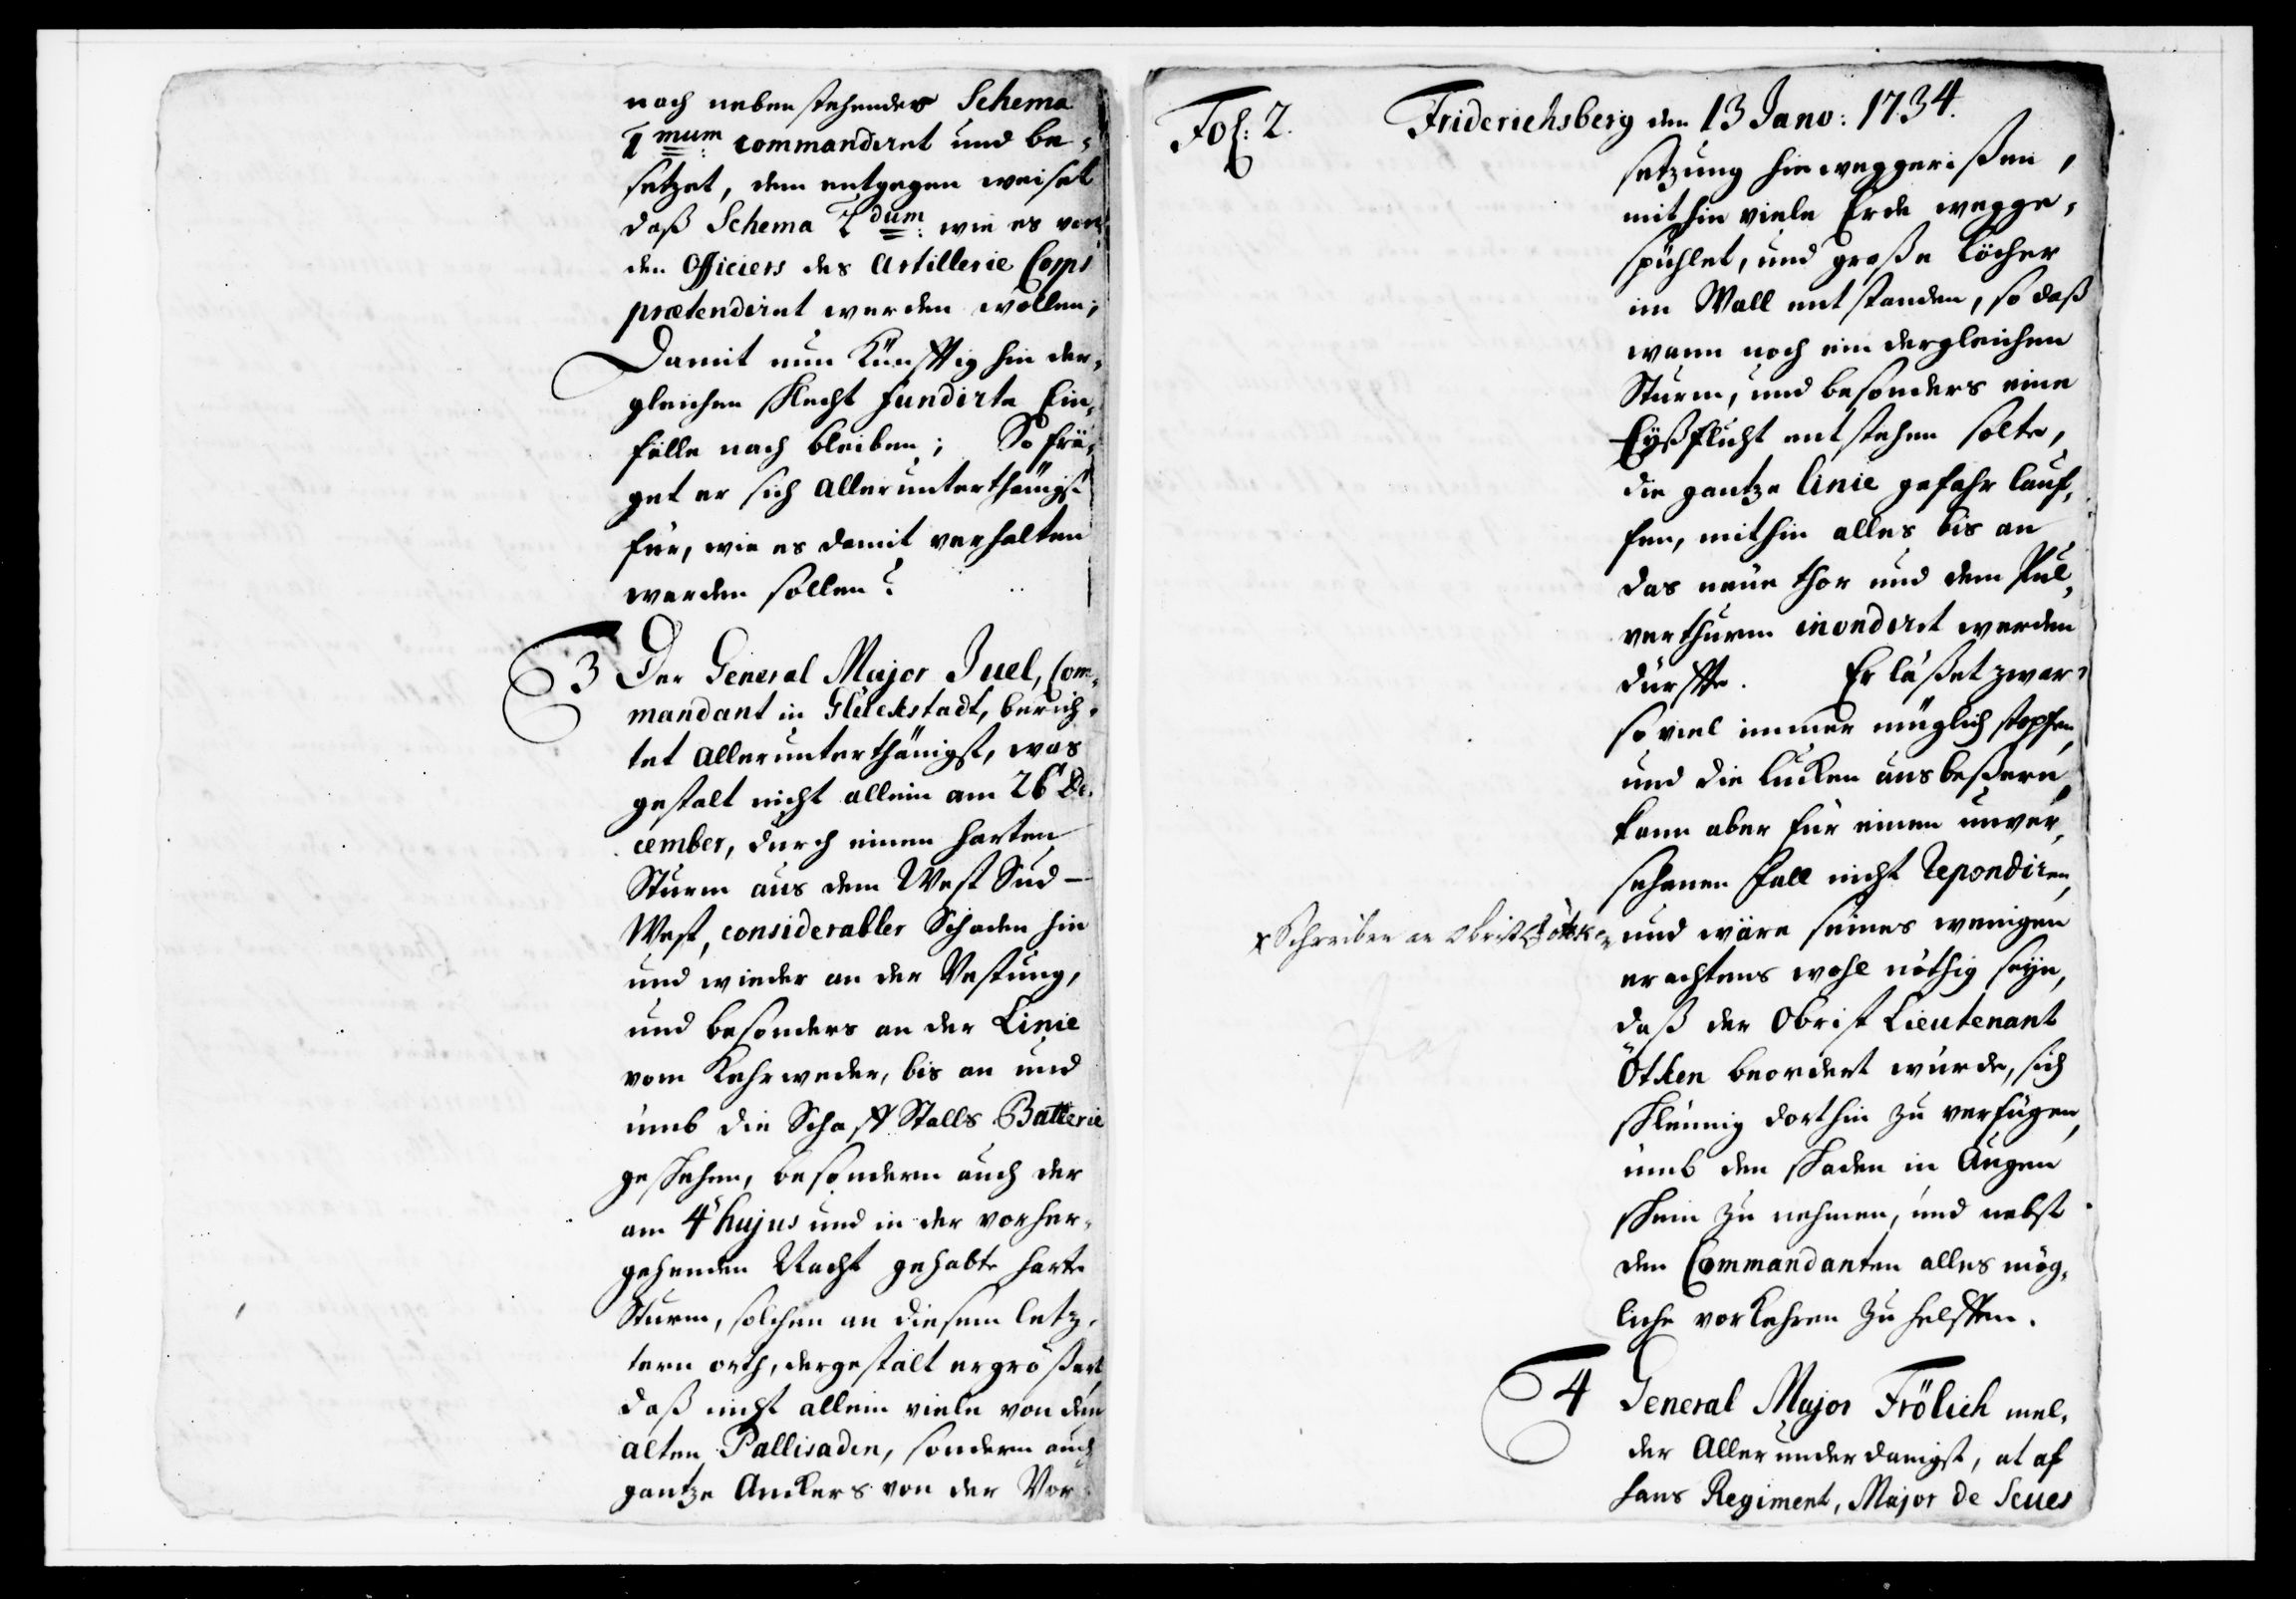 nach nebenstehender Schema
1mum: commandiret und be-
setzet, dem entgegen weiset
daß Schema 2dum: wie es von
den Officiers des Artillerie Corps
prætendiret werden wollen;
Damit nun Künfftig hin der-
gleichen schlecht fundirte Ein-
fälle nach bleiben; So frä-
get er sich allerunterthänigst
für, wie es damit verhalten
werden sollen?
3 Der General Major Juel, Com-
mandant in Glückstadt, berich-
tet allerunterthänigst, was
gestalt nicht allein am 26 De-
cember, durch einen harten
Sturm aus dem West Sud-
West, considerabler Schaden hin
und wieder an der Vestung,
und besonders an der Linie
vom Kehrweder, bis an und
umb die Schafft Stalls Batterie
geschehen, besondern auch der
am 4 hujus und in der vorher-
gehenden Nacht gehabte harte
Sturm, solchen an diesem letz-
tern orth, dergestalt ergrößert,
daß nicht allein viele von den
alten Pallisaden, sondern auch
gantze Anckers von der Vor-
Fol: 2. Friderichsberg den 13 Janv: 1734.
setzung hinweggerißen,
mithin viele Erde wegge-
spühlet, und große Löcher
im Wall entstanden, so daß
wann noch ein dergleichen
Sturm, und besonders eine
Eyßflucht entstehen solte,
die gantze Linie gefahr lauf-
fen, mithin alles bis an
das neue Thor und dem Pul-
verthurm inondiret werden
dürffte. Er läßet zwar
so viel immer müglich stopfen,
und die Lucken ausbeßern,
kann aber für einen unver-
sehenen Fall nicht repondiren,
x Schreiben an Obrist Ötken
und wäre seines wenigen
erachtens wohl nöthig seyn,
daß der Obrist Lieutenant
Ötken beordert würde, sich
schleunig dorthin zu verfügen,
umb den schaden in Augen
schein zu nehmen, und nebst
den Commandanten alles mög-
liche vorkehren zu helffen.
4 General Major Frölich mel-
der allerunderdanigst, at af
hans Regiment, Major de Seues